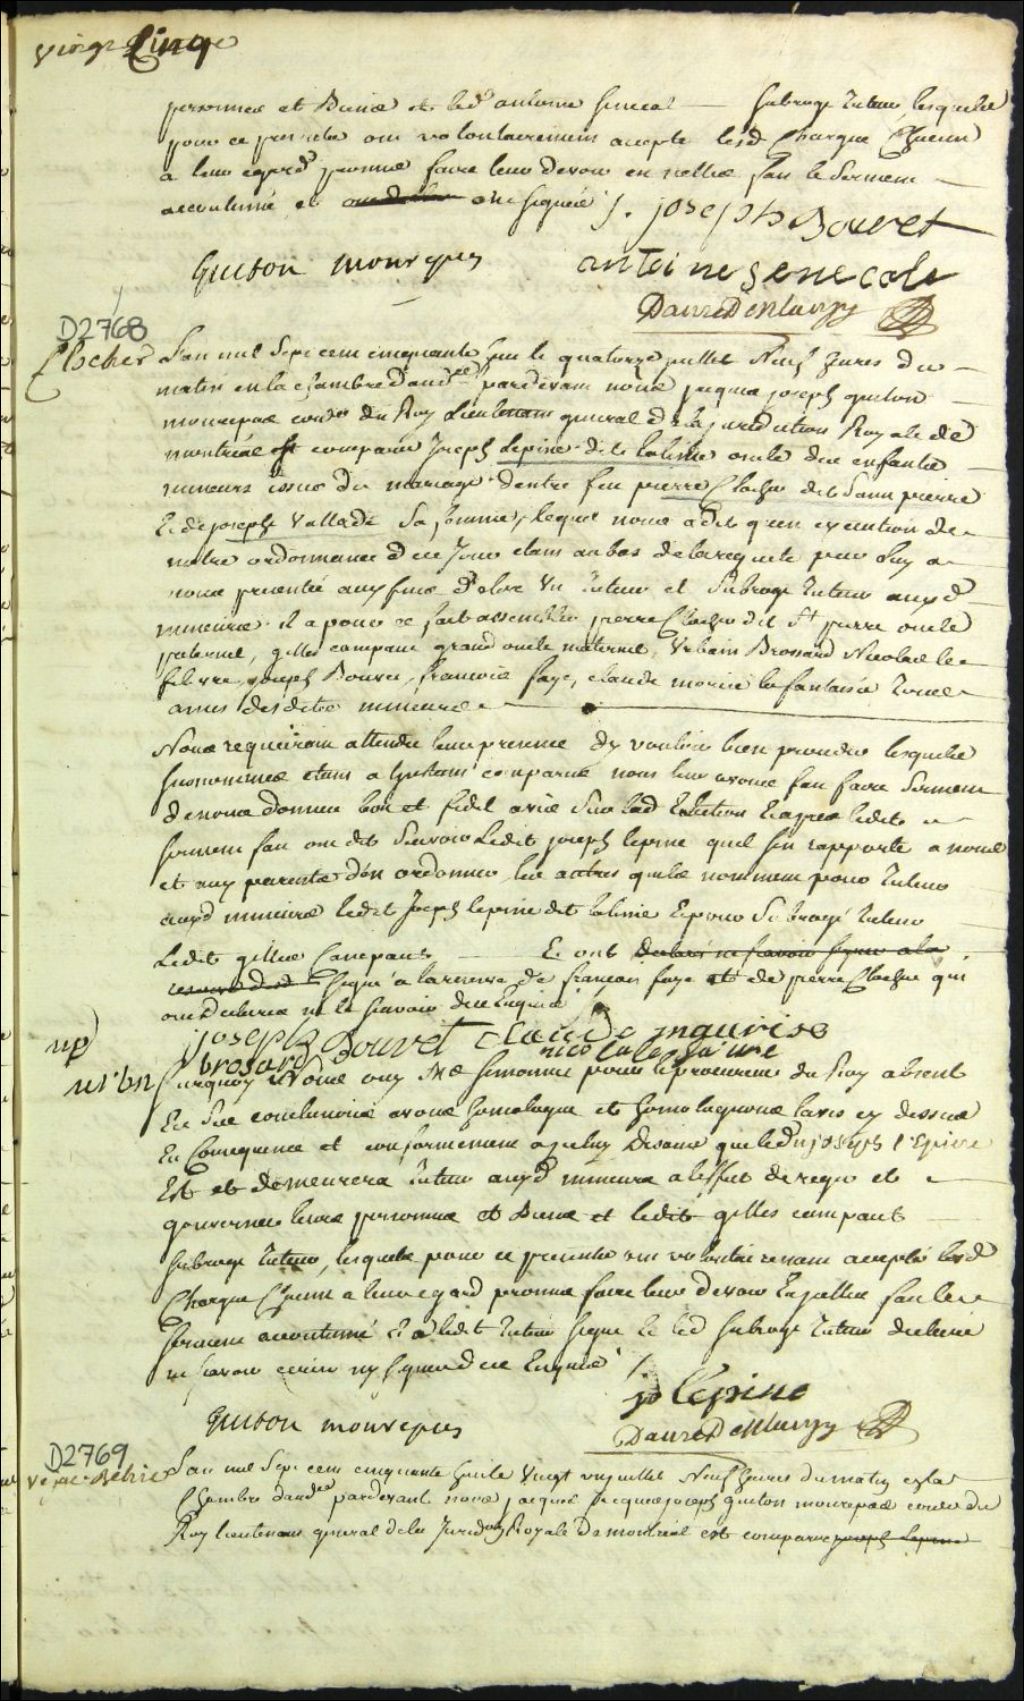 Vingt Cinq
personnes et Biens et led antoine senecal — subroge tuteur, lesquels
pour ce presents ont volontairement accepté lesd Charges Chacun
a leur egard promis faire leur devoir en icelles fait le serment —
accoutumé, et ont signés ./. joseph Bouvet
Guiton monrepos antoine senecale
DanréDeblanzy
D2768
Clocher
L'an mil sept cent cinquante huit le quatorze juillet Neuf heures du —
matin en la chambre d'aud.ce pardevant nous jacques joseph guiton
monrepos con.er du Roy Lieutenant general de la jurisdiction Royale de
montréal est comparu Joseph Lepine dit lalime oncle des enfants
mineurs issus du mariage d'entre feu pierre Clocher dit Saint pierre
Et de joseph Vallade sa femme, lequel nous a dit qu'en execution de
notre ordonnance de ce Jour etant au bas de la requete par luy a
nous presentée aux fins d'Elire un tuteur et subroge tuteur auxd
mineurs il a pour ce fait assembler pierre Clocher dit St pierre oncle
paternel, gilles campaut grand oncle maternel, Urbain Brossard Nicolas le
febvre joseph Bouvet, francois faye, claude morice lafantaisie tous
amis desdits mineurs
Nous requerant attendu leur presence d'y vouloir bien proceder lesquels
susnommés etant a l'instant comparus nous leur avons fait faire serment
de nous donner bon et fidel avis sur lad Election Et apres ledit
serment fait ont dit Sçavoir Ledit joseph lepine quil s'en rapporte a nous
et aux parents d'en ordonner, les autres quils nomment pour tuteur
auxd mineurs ledit Joseph lepine dit lalime Et pour subrogé tuteur
Ledit gilles Campaut — Et ont declaré ne sçavoir signer a la
reserve dud signé a la reserve de francois faye et de pierre Clocher qui
ont declarés ne le sçavoir de ce Enquis
joseph Bouvet claude maurise
urbn brosard nicolas le faivre
Surquoy Nous ouy Me simonnet pour le procureur du Roy absent
En ses conclusions avons homologué et homologuons l'avis cy dessus
En Consequence et conformement a iceluy Disons que led joseph l'epine
Est et demeurera tuteur auxd mineurs a l'effet de regir et
gouverner leurs personnes et Biens et ledit gilles campaut
subroge tuteur, lesquels pour ce presents ont volontairement accepté lesd
Charges Chacun a leur egard promis faire leur devoir En icelles fait le
serment accoutumé Et a ledit tuteur signé Et led subrogé tuteur declaré
ne sçavoir ecrire ny signer de ce Enquis ./.
jo lepine
Guiton monrepos DanréDeblanzy
D2769
L'an mil Sept cent cinquante huit le Vingt un juillet Neuf heures du matin en la
Chambre daud.ce pardevant nous jacques joseph guiton monrepos con.er du
Roy lieutenant general de la Jurisd.on Royale De montreal est comparu joseph Lepine